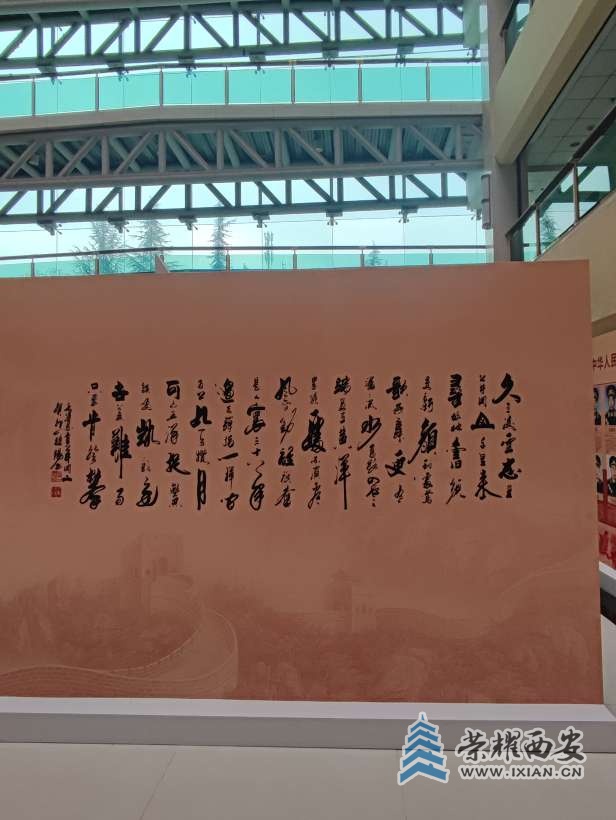 久有凌雲志重
上井冈山千里来
尋故地舊貌
變新颜到處莺
歌燕舞更有
潺潺流水高路入雲
端過了黄洋
界險處不須看
風雷動旌旗奋
是人寰三十八年
過去弹指一挥间
可上九天揽月
可下五洋捉鳖
談笑凱歌還
世上無難事
只要肯登攀
中华人民
荣耀西安
WWW.IXIAN.CN